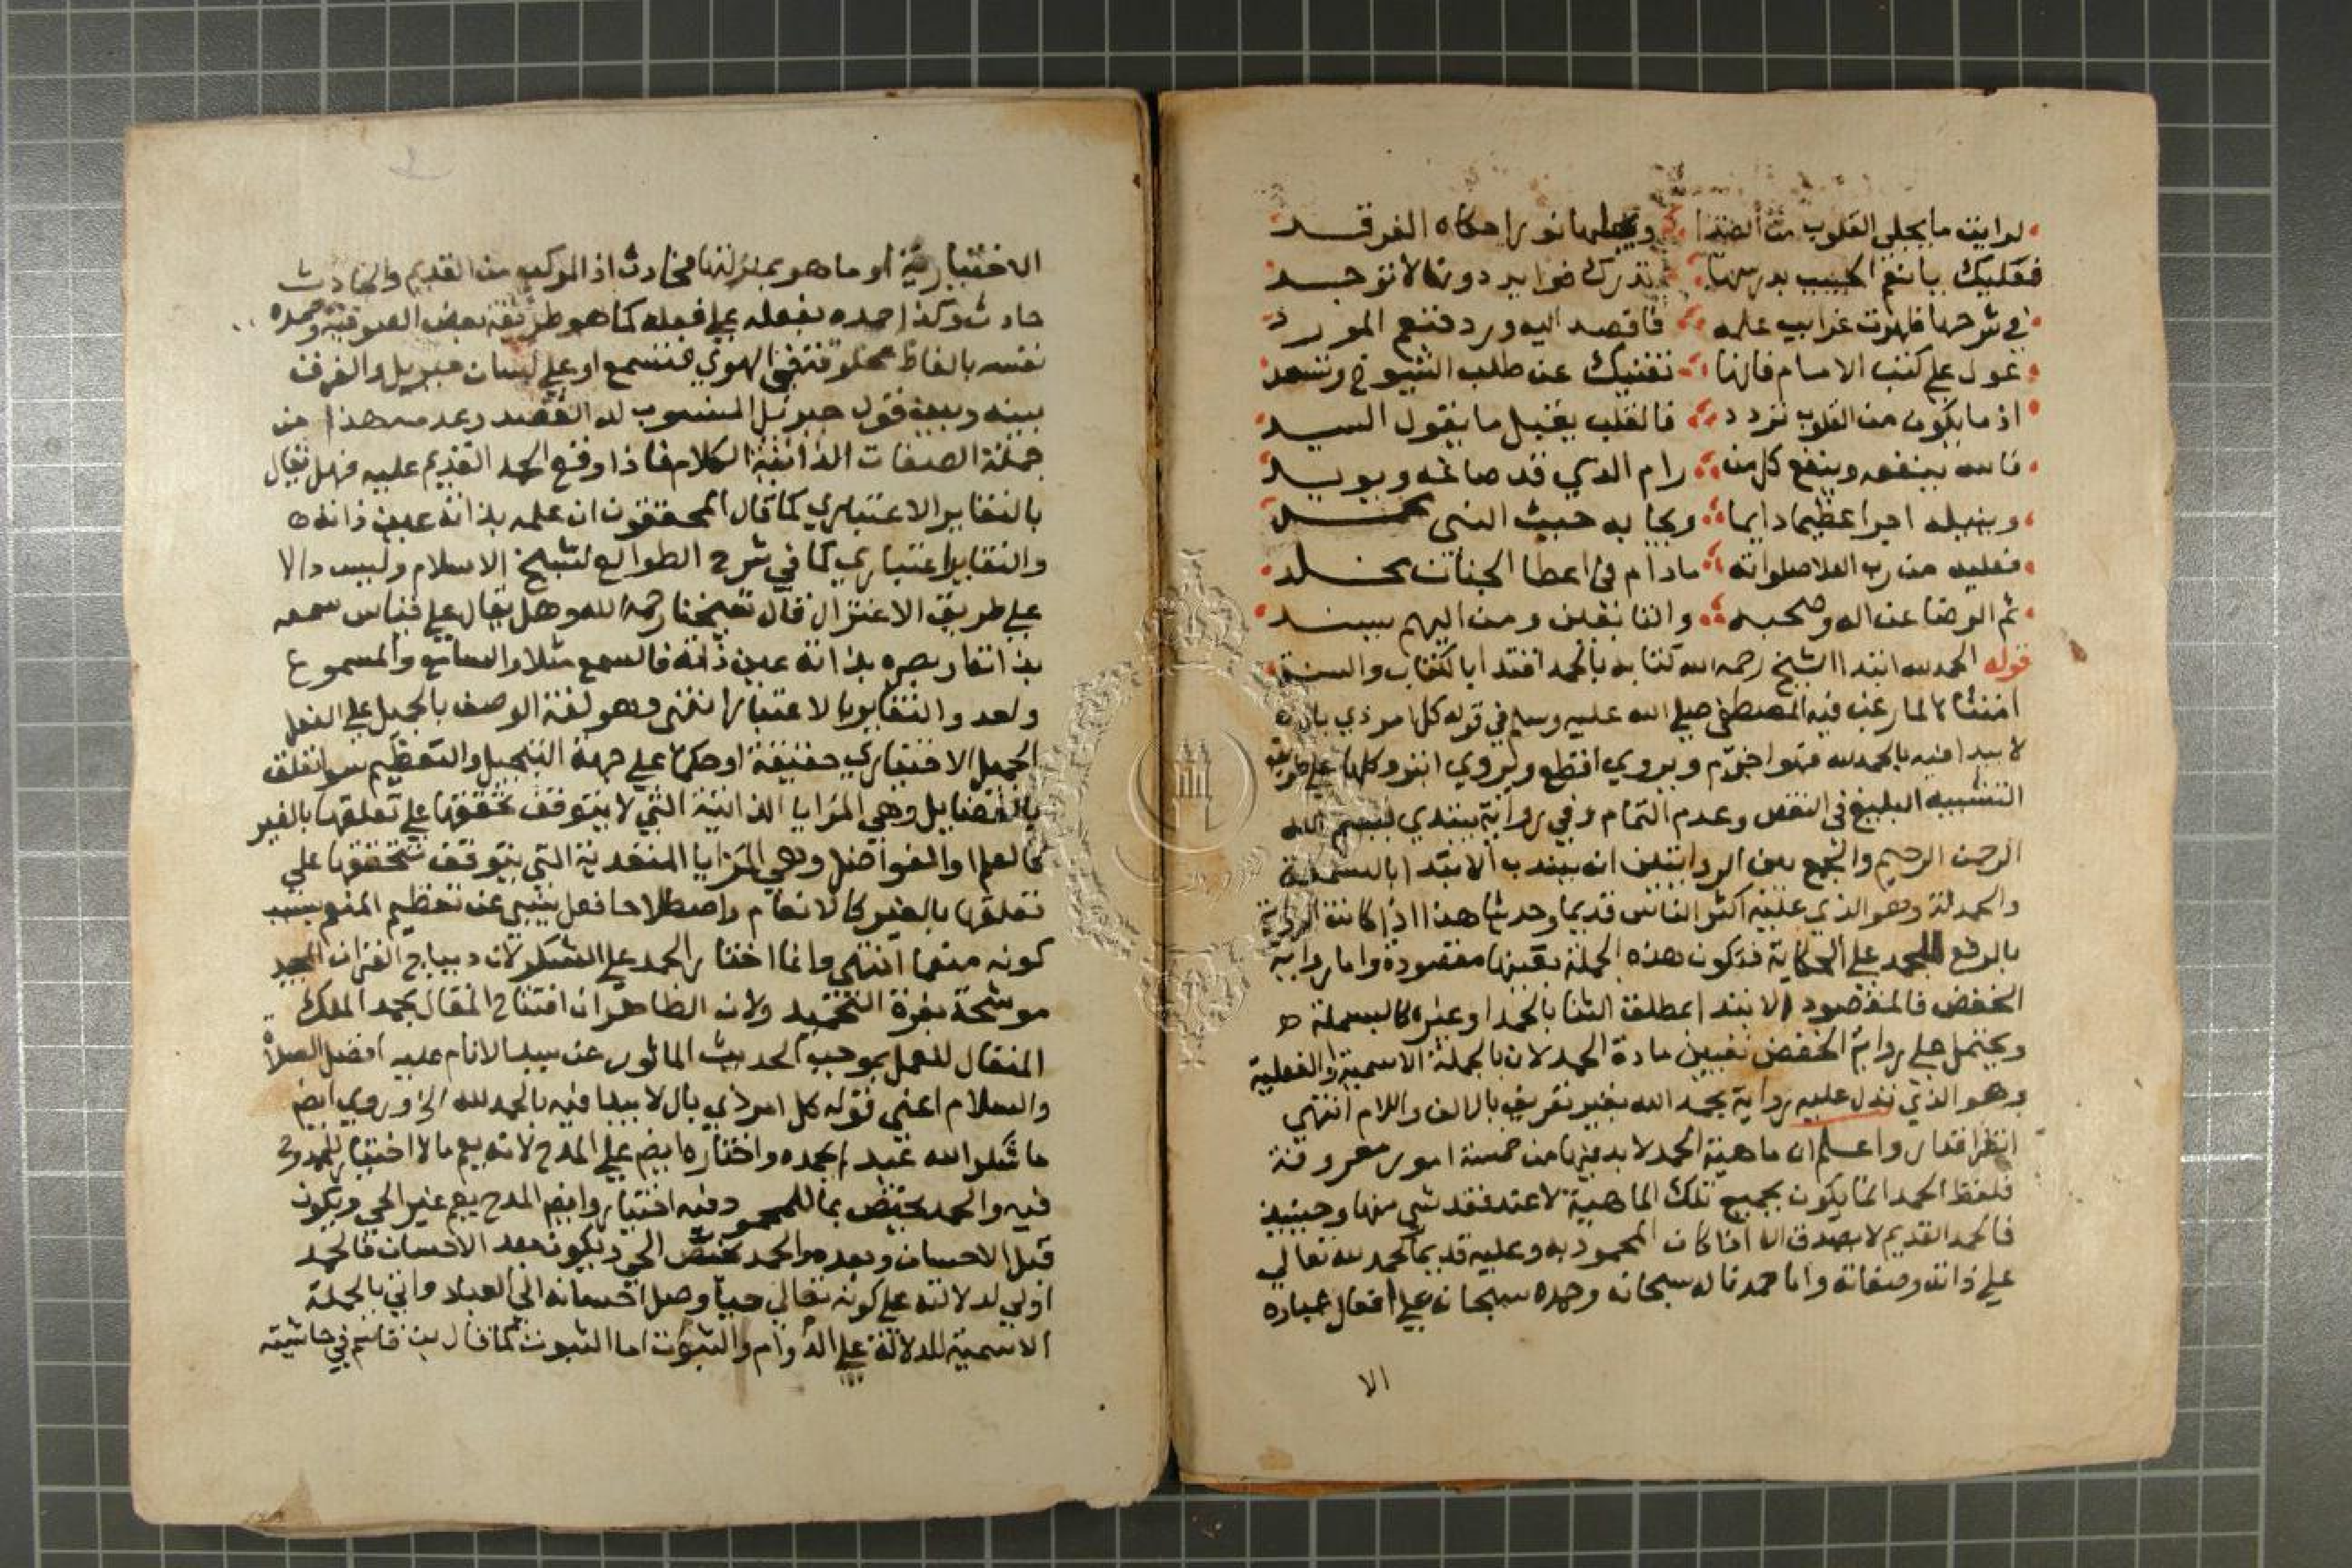 لرايت ما يجلي القلوب من الصدا ونورا حكاه الفرقد
فعليك يا نعم الحبيب بدرسها تدرك فوايد دونها لا توجد
في شرحها ظهرت غرايب علمه فاقصد اليه ورد فنعم المورد
عول علي كتب الامام فانها تغنيك عن طلب الشيوخ وتسعد
اذ ما يكون من القلوب تردد فالقلب يقبل ما يقول السيد
فالله ينفعه وينفع كل من رام الذي قد صاغه ويويد
وينيله اجرا عظيما دايما وبجابه حيث النبي
فعليه من رب العلا صلواته ما دام في اعطا الجنان يخلد
ثم الرضا عن اله وصحبه والتابعين ومن اليهم يسند
قوله الحمد لله ابتدا الشيخ رحمه الله كتابه بالحمد اقتدا بالكتاب والسنة
امتثالا لما رغب فيه المصطفي صلي الله عليه وسلم في قوله كل امر ذي بال
لا يبدا فيه بالحمد لله فهو اجذم ويروي اقطع ويروي ابتر وكلها علي طريقة
التشبيه البليغ في النقص وعدم التمام وفي رواية يبتدي ببسم الله
الرحمن الرحيم والجمع بين الروايتين ان يبتدي الابتدا بالبسملة
والحمدلة وهو الذي عليه اكثر الناس قديما وحديثا هذا اذا كانت الرواية
بالرفع للحمد علي الحكاية فتكون هذه الجملة بعينها مقصودة واما رواية
الخفض فالمقصود الابتدا بمطلق الثنا بالحمد او غيره كالبسملة
ويحتمل علي رواية الخفض تعيين مادة الحمد لان بالجملة الاسمية والفعلية
وهو الذي تدل عليه رواية بحمد الله بغير تعريف بالالف واللام انتهي
واعلم ان ماهية الحمد لا بد فيها من خمسة امور معروفة
فلفظ الحمد انما يكون بجميع تلك الماهية لا عند فقد شي منها وحينيذ
فالحمد القديم لا يصدق الا اذا كان المحمود به وعليه قديما كحمد الله تعالي
علي ذاته وصفاته واما حمدنا له سبحانه وحمده سبحانه علي افعال عباده
الا
الاختيارية او ما هو بمنزلتها فحادث اذ المركب من القديم والحادث
حادث وكذا حمده بفعله علي فعله كما هو طريقة بعض الصوفية وحمده
نفسه بالفاظ مخلوقة في الهوي فتسمع او علي لسان جبريل والفرق
بينه وبين قول جبرئل المنسوب له القصد وعدمه هذا من
جملة الصفات الذاتية الكلام فاذا وقع الحمد القديم عليه فهل يقال
بالتغاير الاعتباري كما قال المحققون ان علمه بذاته عين ذاته
والتغاير اعتباري كما في شرح الطوالع لشيخ الاسلام وليس دالا
علي طريق الاعتزال قال شيخنا رحمه الله وهل يقال علي قياس سمعه
بذاته وبصره بذاته عين ذاته فالسمع مثلا والسامع والمسموع
واحد والتغاير بالاعتبار انتهي وهو لغة الوصف بالجميل علي الفعل
الجميل الاختياري حقيقة او حكما علي جهة التبجيل والتعظيم سوا تعلق
بالفضايل وهي المزايا الذاتية التي لا يتوقف تحققها علي تعلقها بالغير
كالعلم او الفواضل وهي المزايا المتعدية التي يتوقف تحققها علي
تعلقها بالغير كالانعام واصطلاحا فعل ينبي عن تعظيم المنعم بسبب
كونه منعما انتهي وانما اختار الحمد علي الشكر لان ديباج القران المجيد
موشحة بغرة التحميد ولان الظاهر ان افتتاح المقال بحمد الملك
المتعال للعمل بموجب الحديث الماثور عن سيد الانام عليه افضل الصلاة
والسلام اعني قوله كل امر ذي بال لا يبدا فيه بالحمد لله الخ وروي ايضا
ما شكر الله عبد لم يحمده واختاره ايضا علي المدح لانه يعم ما لا اختيار للممدوح
فيه والحمد يختص بما للمحمود فيه اختيار وايضا المدح يعم غير الحي ويكون
قبل الاحسان وبعده والحمد يختص الحي ويكون بعد الاحسان فالحمد
اولي لدلالته علي كونه تعالي حيا وصل احسانه الي العباد واتي بالجملة
الاسمية للدلالة علي الدوام والثبوت اما الثبوت كما قال بن قاسم في حاشيته